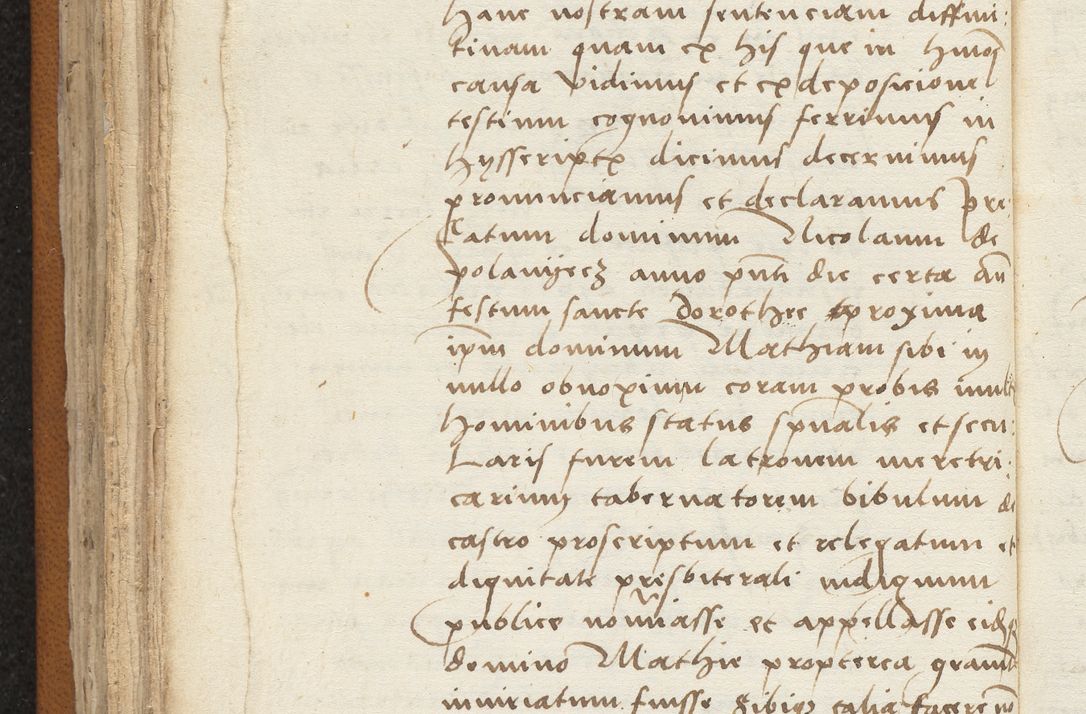 hanc nostram sentenciam diffini:
tinam quam ex his que in hmoi
causa vidimus et ex deposicione
testium cognouimus ferrimus in
hysscriptis dicimus decernimus
pronunciamus et declaramus pre:
fatum dominum Nicolaum de
polanyecz anno pnti die certa an
festum sancte Dorothee proxima
ipm dominum Mathiam sibi in
nullo obnoxium coram probis mult
hominibus status spualis et secu:
Laris furem latronem meretri:
carium tabernatorem bibulum de
castro proscriptum et relegatum et
dignitate presbiterali indignum
publice nominasse et appellasse eidem
domino Mathie propterea grauit
iniuriatum fuisse sibique talia facere no